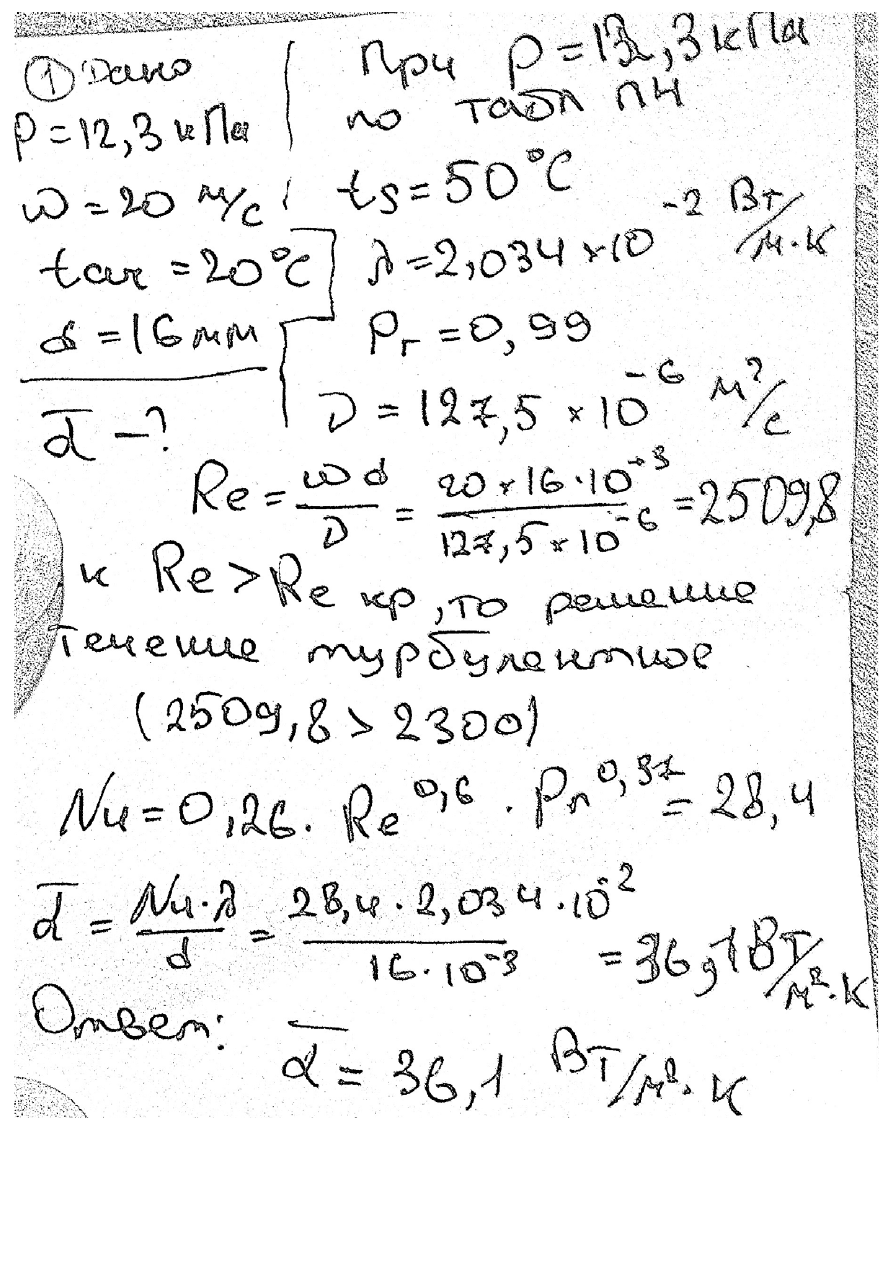 ① Дано
P = 12,3 кПа
w = 20 м/с
tст = 20°C
d = 16 мм
α̅ – ?
При P = 12,3 кПа
по табл П4
ts = 50°C
λ = 2,034 × 10⁻² Вт/м·К
Pr = 0,99
ν = 127,5 × 10⁻⁶ м²/с
Re = wd/ν = 20 × 16·10⁻³/127,5 × 10⁻⁶ = 2509,8
к Re > Re кр, то решение
течение турбулентное
(2509,8 > 2300)
Nu = 0,26 · Re⁰,⁶ · Pr⁰,³⁷ = 28,4
α̅ = Nu·λ/d = 28,4 · 2,034 · 10⁻²/16·10⁻³ = 36,1 Вт/м²·К
Ответ:
α̅ = 36,1 Вт/м²·К